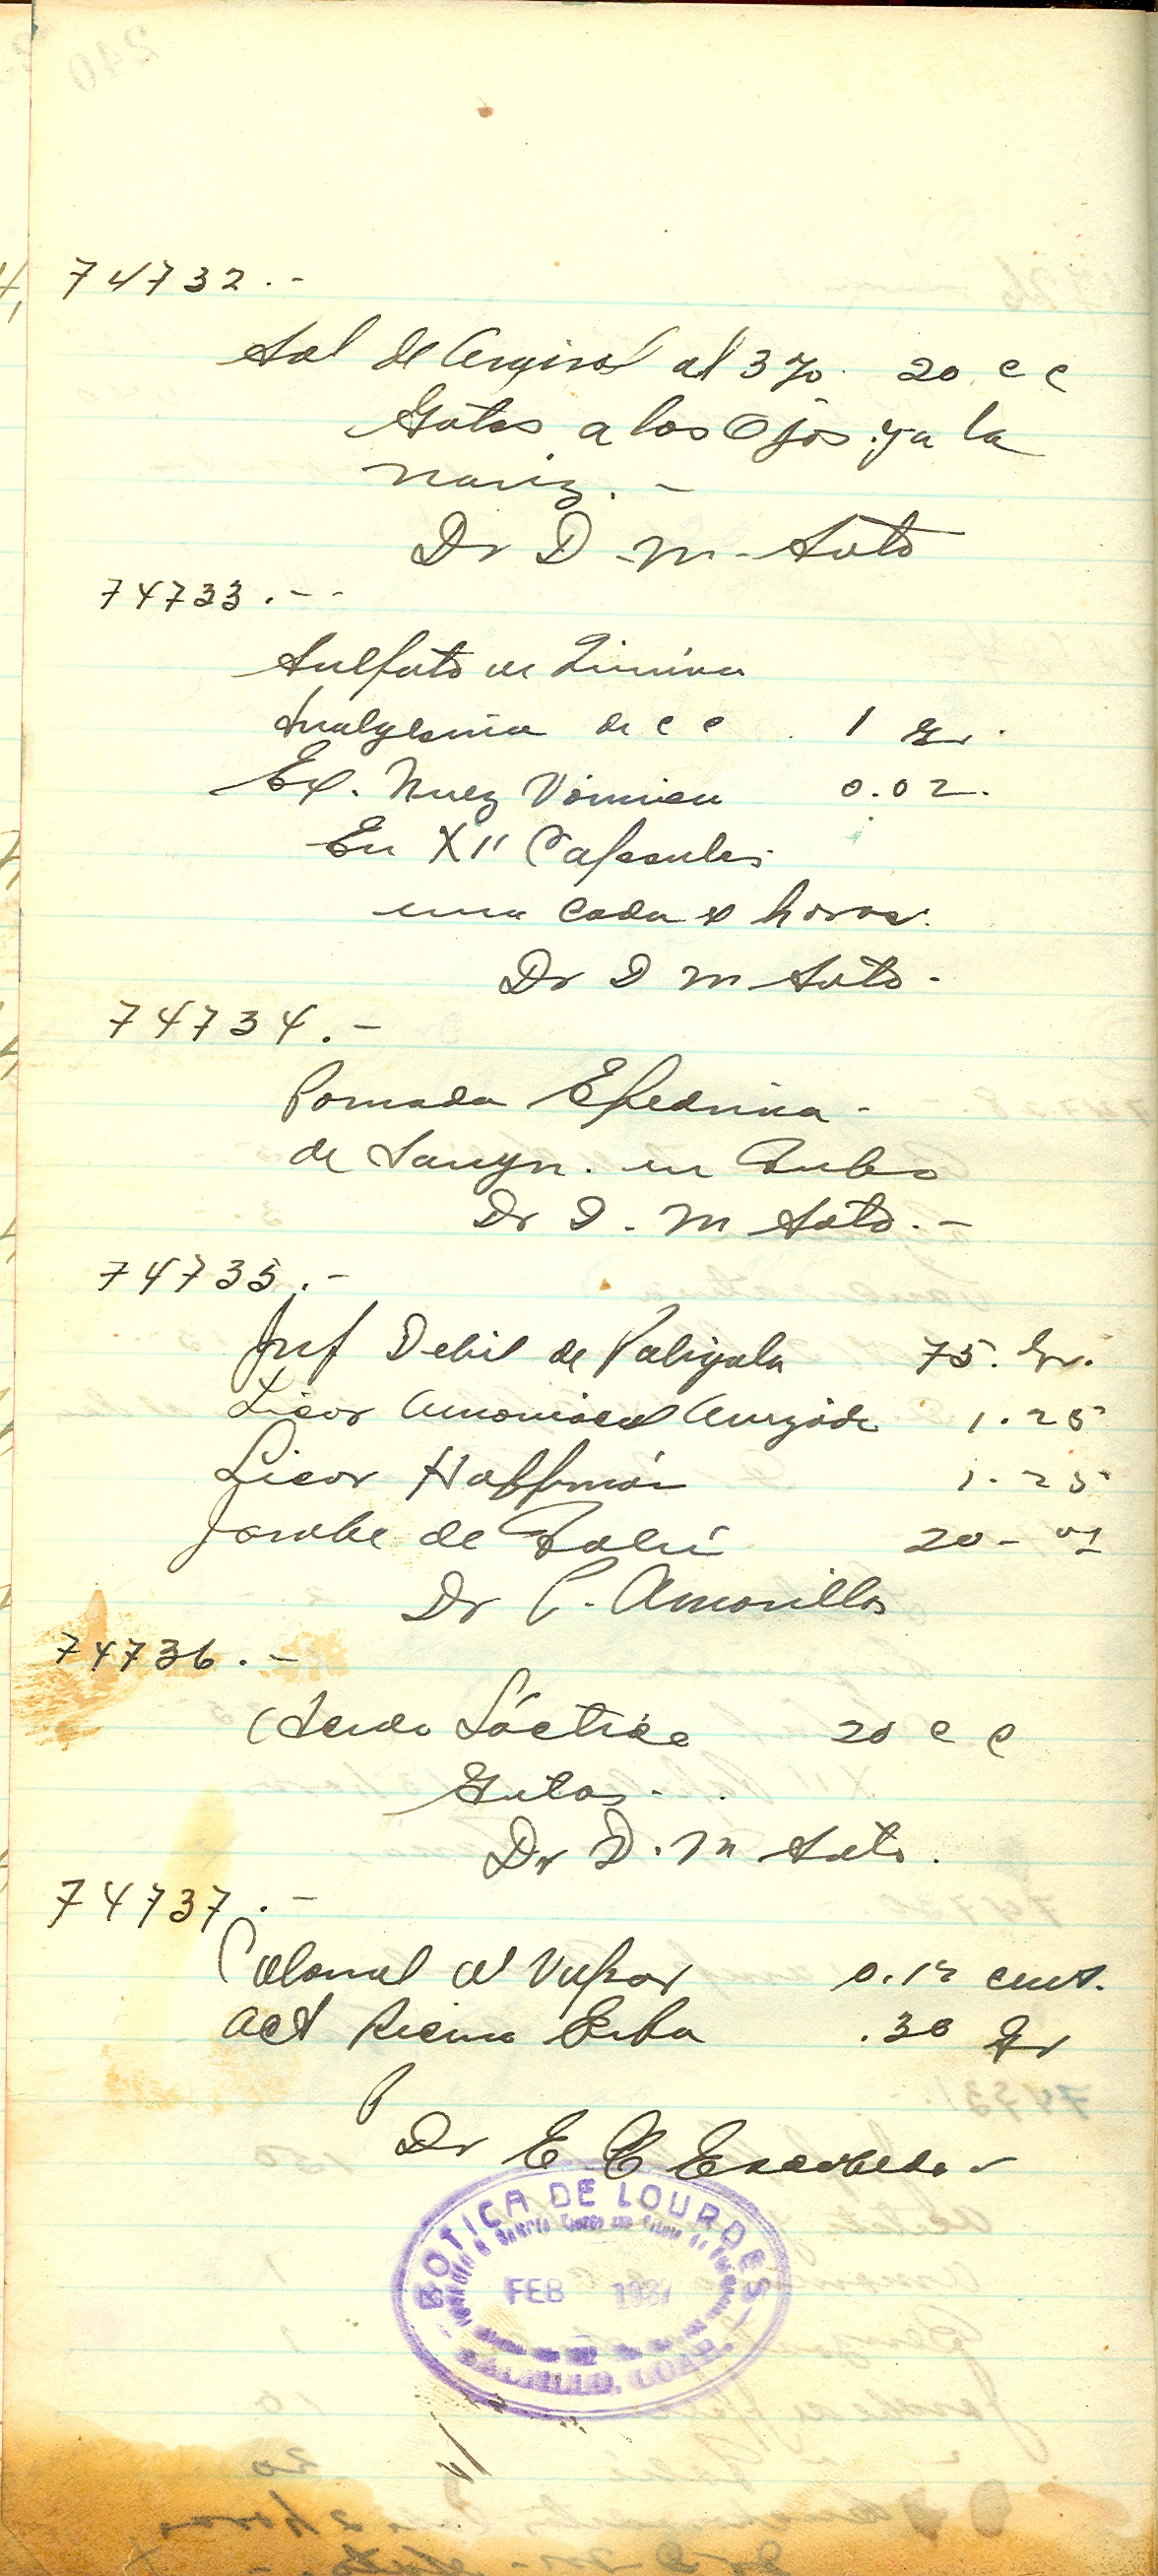 74732.-
Sol de Argirol al 3%. 20 c c
Gotas a los Ojos y a la
nariz. -
Dr D - M - Soto
74733.--
Sulfato de Quinina
Analgesina de c c 1 Gr.
Ex. Nuez Vomica 0.02.
En XII Capsulas
una cada horas.
Dr D M Soto -
74734.-
Pomada Efedrina -
de en Tubo
Dr D. M Soto.-
74735.-
Inf Debil de Poligala 75. Gr.
Licor Amoniacal Anizado 1.25
Licor Hoffman 1.25
Jarabe de Tolú 20-
Dr P. Amarillas
74736.-
Lactico 20 c c
Gotas.
Dr D. M Soto.
74737.-
Calomel al Vapor 0.12 cent.
Act Ricino Erba .30 Gr
Dr E C
BOTICA DE LOURDES
FEB 1937
SALTILLO, COAH.